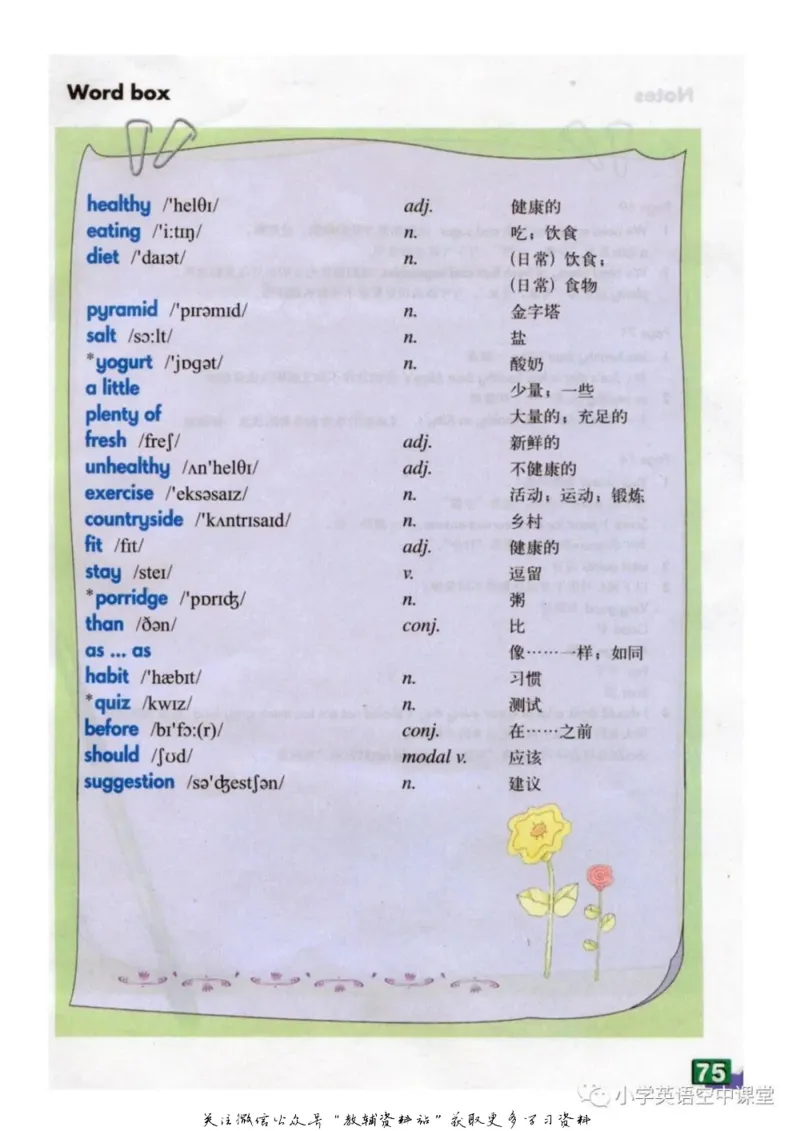 Word box
Notes
healthy /'helθɪ/ adj. 健康的
eating /'i:tɪŋ/ n. 吃；饮食
diet /'daɪət/ n. （日常）饮食；
（日常）食物
pyramid /'pɪrəmɪd/ n. 金字塔
salt /sɔ:lt/ n. 盐
*yogurt /'jɒgət/ n. 酸奶
a little 少量；一些
plenty of 大量的；充足的
fresh /freʃ/ adj. 新鲜的
unhealthy /ʌn'helθɪ/ adj. 不健康的
exercise /'eksəsaɪz/ n. 活动；运动；锻炼
countryside /'kʌntrɪsaɪd/ n. 乡村
fit /fɪt/ adj. 健康的
stay /steɪ/ v. 逗留
*porridge /'pɒrɪʤ/ n. 粥
than /ðən/ conj. 比
as ... as 像……一样；如同
habit /'hæbɪt/ n. 习惯
*quiz /kwɪz/ n. 测试
before /bɪ'fɔ:(r)/ conj. 在……之前
should /ʃʊd/ modal v. 应该
suggestion /sə'ʤestʃən/ n. 建议
75
小学英语空中课堂
关注微信公众号"教辅资料站"获取更多学习资料